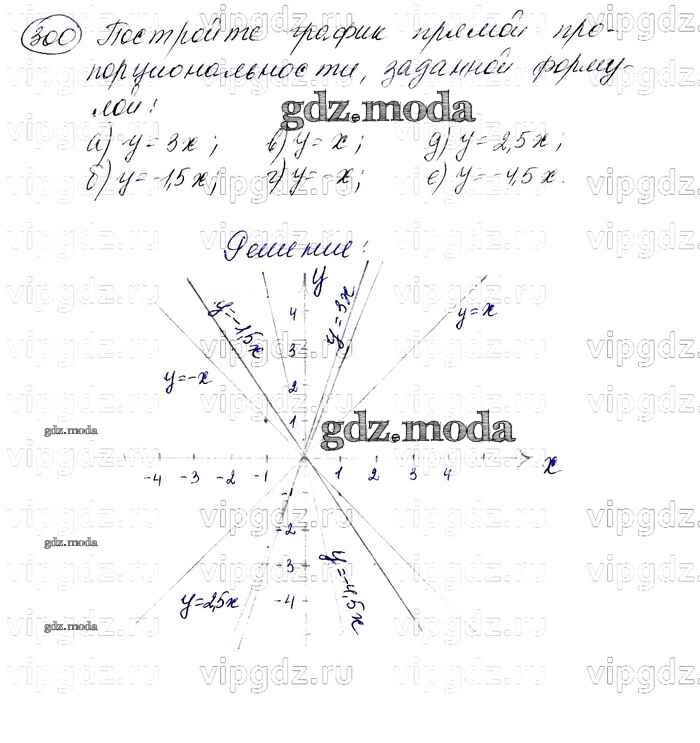 300 Постройте график прямой про-
порциональности, заданной форму-
лой:
gdz.moda
а) y = 3x; в) y = x; д) y = 2,5x;
б) y = -1,5x; г) y = -x; е) y = -4,5x.
Решение:
y
y = -1,5x
y = 3x
y = x
4
3
y = -x
2
1
gdz.moda
gdz.moda
-4 -3 -2 -1 1 2 3 4 x
-1
-2
gdz.moda
-3
y = -4,5x
y = 2,5x
-4
gdz.moda
vipgdz.ru